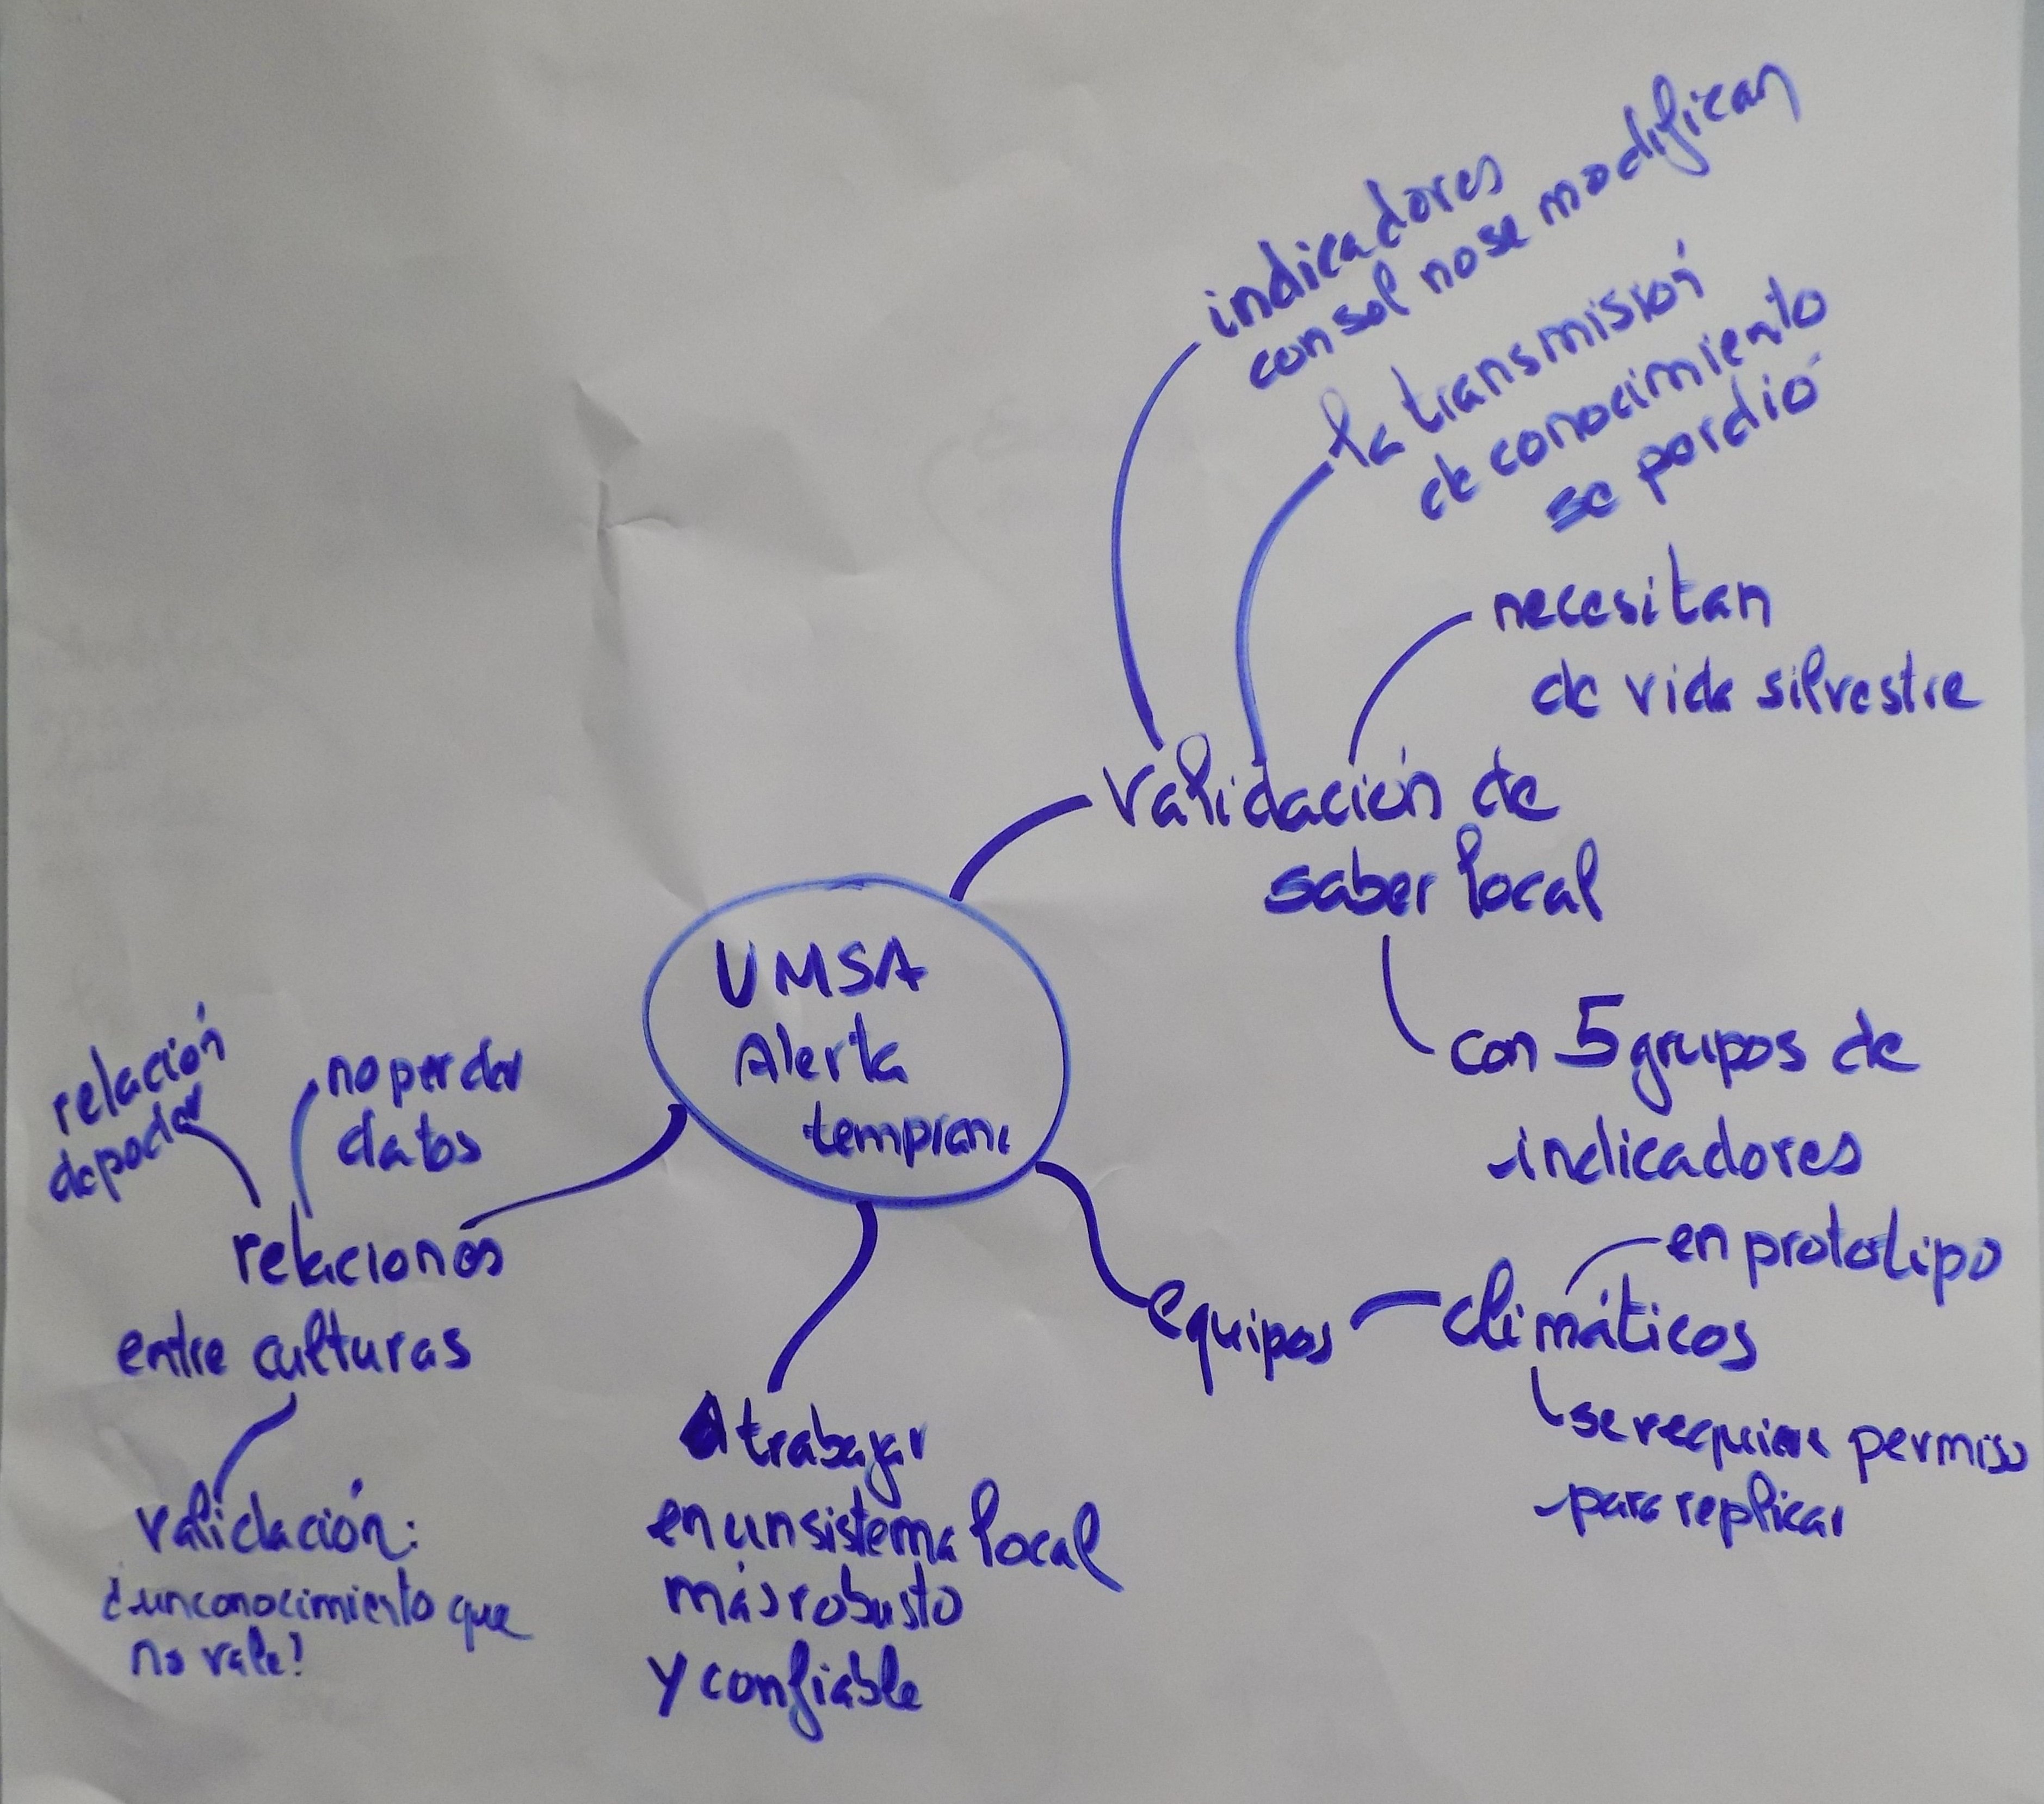 indicadores
con sol no se modifican
la transmisión
de conocimiento
se perdió
necesitan
de vida silvestre
validación de
saber local
con 5 grupos de
indicadores
UMSA
Alerta
temprana
equipos
climáticos
en prototipo
se requiere permiso
para replicar
A trabajar
en un sistema local
más robusto
y confiable
relaciones
entre culturas
relación
de poder
no perder
datos
validación:
¿un conocimiento que
no vale?